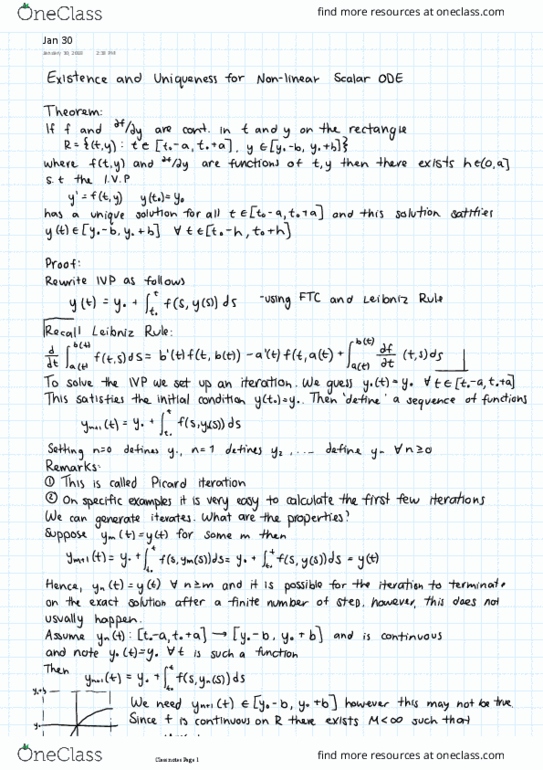 OneClass find more resources at oneclass.com
Jan 30
January 30, 2018 2:38 PM
Existence and Uniqueness for Non-linear Scalar ODE
Theorem:
If f and ∂f/∂y are cont. in t and y on the rectangle
R = {(t,y) : t ∈ [t₀-a, t₀+a], y ∈ [y₀-b, y₀+b]}
where f(t,y) and ∂f/∂y are functions of t,y then there exists h ∈ (0,a]
s.t the I.V.P
y' = f(t,y) y(t₀)=y₀
has a unique solution for all t ∈ [t₀-a, t₀+a] and this solution satisfies
y(t) ∈ [y₀-b, y₀+b] ∀ t ∈ [t₀-h, t₀+h]
Proof:
Rewrite IVP as follows
y(t) = y₀ + ∫ₜ₀ᵗ f(s, y(s)) ds -using FTC and Leibniz Rule
Recall Leibniz Rule:
d/dt ∫_{a(t)}^{b(t)} f(t,s)ds = b'(t) f(t, b(t)) - a'(t) f(t, a(t) + ∫_{a(t)}^{b(t)} df/∂t (t,s)ds
To solve the IVP we set up an iteration. We guess y₀(t) = y₀ ∀ t ∈ [t₀-a, t₀+a]
This satisfies the initial condition y(t₀)=y₀. Then 'define' a sequence of functions
yₙ₊₁(t) = y₀ + ∫ₜ₀ᵗ f(s, yₙ(s)) ds
Setting n=0 defines y₁, n=1 defines y₂, .... define yₙ ∀ n ≥ 0
Remarks:
① This is called Picard iteration
② On specific examples it is very easy to calculate the first few iterations
We can generate iterates. What are the properties?
Suppose yₘ(t) = y(t) for some m then
yₘ₊₁(t) = y₀ + ∫ₜ₀ᵗ f(s, yₘ(s))ds = y₀ + ∫ₜ₀ᵗ f(s, y(s))ds = y(t)
Hence, yₙ(t) = y(t) ∀ n ≥ m and it is possible for the iteration to terminate
on the exact solution after a finite number of step, however, this does not
usually happen.
Assume yₙ(t) : [t₀-a, t₀+a] → [y₀-b, y₀+b] and is continuous
and note y₀(t) = y₀ ∀ t is such a function
Then yₙ₊₁(t) = y₀ + ∫ₜ₀ᵗ f(s, yₙ(s)) ds
y₀+b
We need yₙ₊₁(t) ∈ [y₀-b, y₀+b] however this may not be true.
y₀
Since f is continuous on R there exists M<∞ such that
OneClass Class notes Page 1 find more resources at oneclass.com